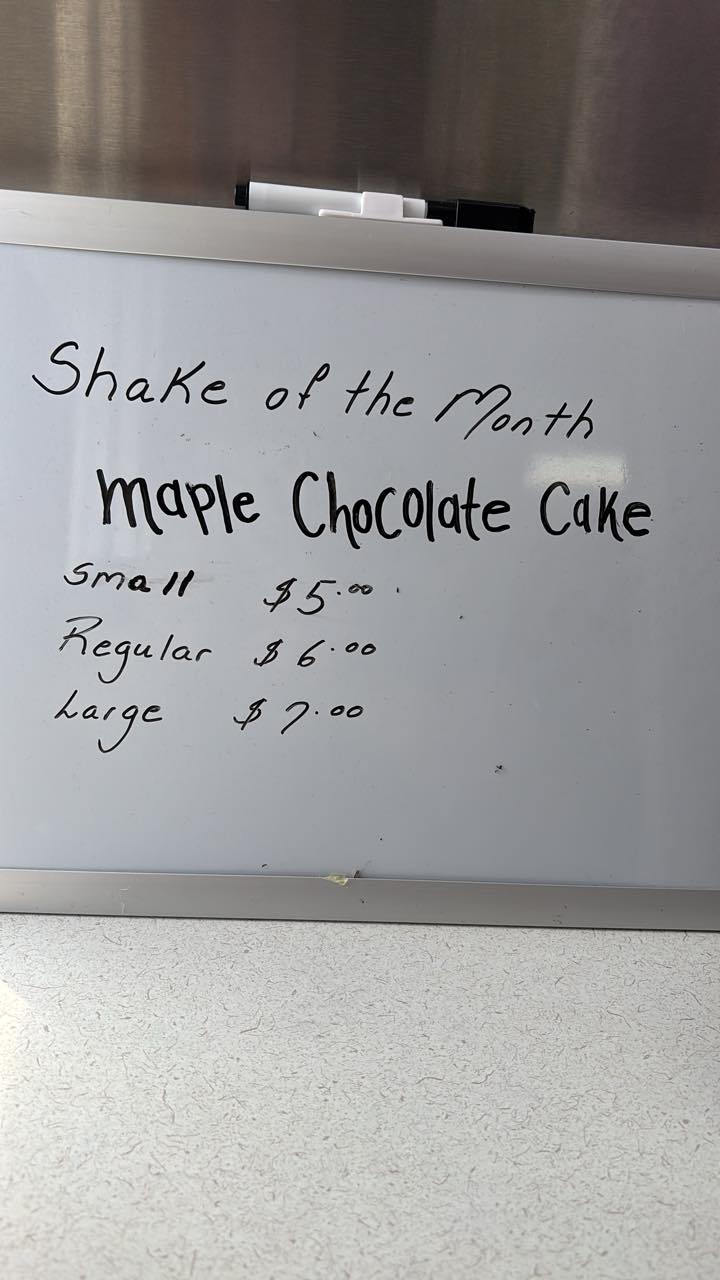 Shake of the Month
Maple Chocolate Cake
Small $5.00
Regular $6.00
Large $7.00